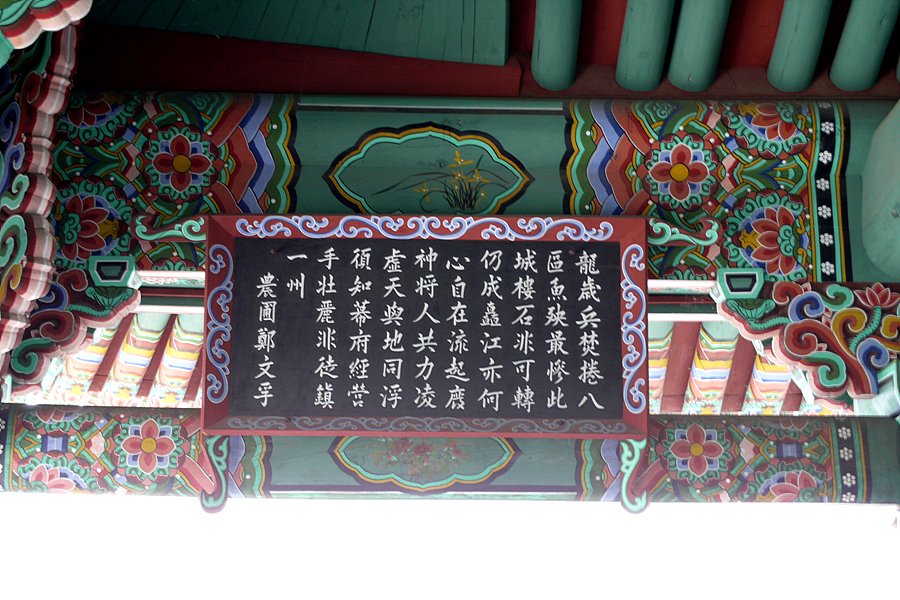 龍歲兵焚捲八
區魚殃最慘此
城樓石非可轉
仍成矗江亦何
心自在流起廈
神将人共力凌
虛天與地同浮
須知幕府經營
手壯麗非徒鎮
一州
農圃鄭文孚